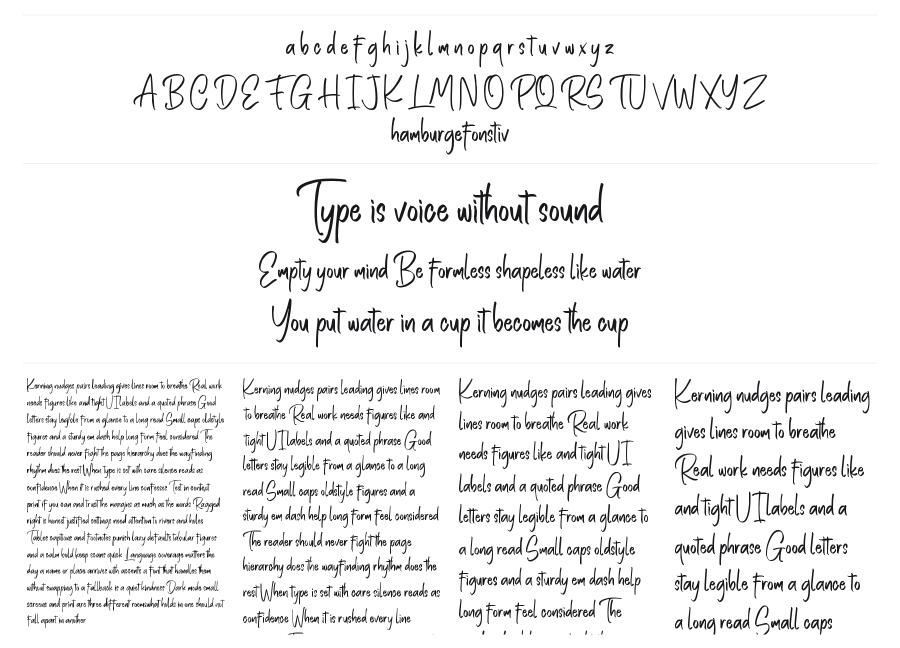 abcdefghijklmnopqrstuvwxyz
ABCDEFGHIJKLMNOPQRSTUVWXYZ
hamburgefonstiv
Type is voice without sound
Empty your mind Be formless shapeless like water
You put water in a cup it becomes the cup
Kerning nudges pairs leading gives lines room to breathe Real work
needs figures like and tight UI labels and a quoted phrase Good
letters stay legible from a glance to a long read Small caps oldstyle
figures and a sturdy em dash help long form feel considered The
reader should never fight the page hierarchy does the wayfinding
rhythm does the rest When type is set with care silence reads as
confidence When it is rushed every line confesse Test in context
print if you can and trust the margins as much as the words Ragged
right is honest justified settings need attention to rivers and holes
Tables captions and footnotes punish lazy defaults tabular figures
and a calm bold keep score quick Language coverage matters the
day a name or place arrives with accents a font that handles them
without swapping to a fallback is a quiet kindness Dark mode small
screens and print are three different rooms what holds in one should not
fall apart in another
Kerning nudges pairs leading gives lines room
to breathe Real work needs figures like and
tight UI labels and a quoted phrase Good
letters stay legible from a glance to a long
read Small caps oldstyle figures and a
sturdy em dash help long form feel considered
The reader should never fight the page
hierarchy does the wayfinding rhythm does the
rest When type is set with care silence reads as
confidence When it is rushed every line
Kerning nudges pairs leading gives
lines room to breathe Real work
needs figures like and tight UI
labels and a quoted phrase Good
letters stay legible from a glance to
a long read Small caps oldstyle
figures and a sturdy em dash help
long form feel considered The
Kerning nudges pairs leading
gives lines room to breathe
Real work needs figures like
and tight UI labels and a
quoted phrase Good letters
stay legible from a glance to
a long read Small caps